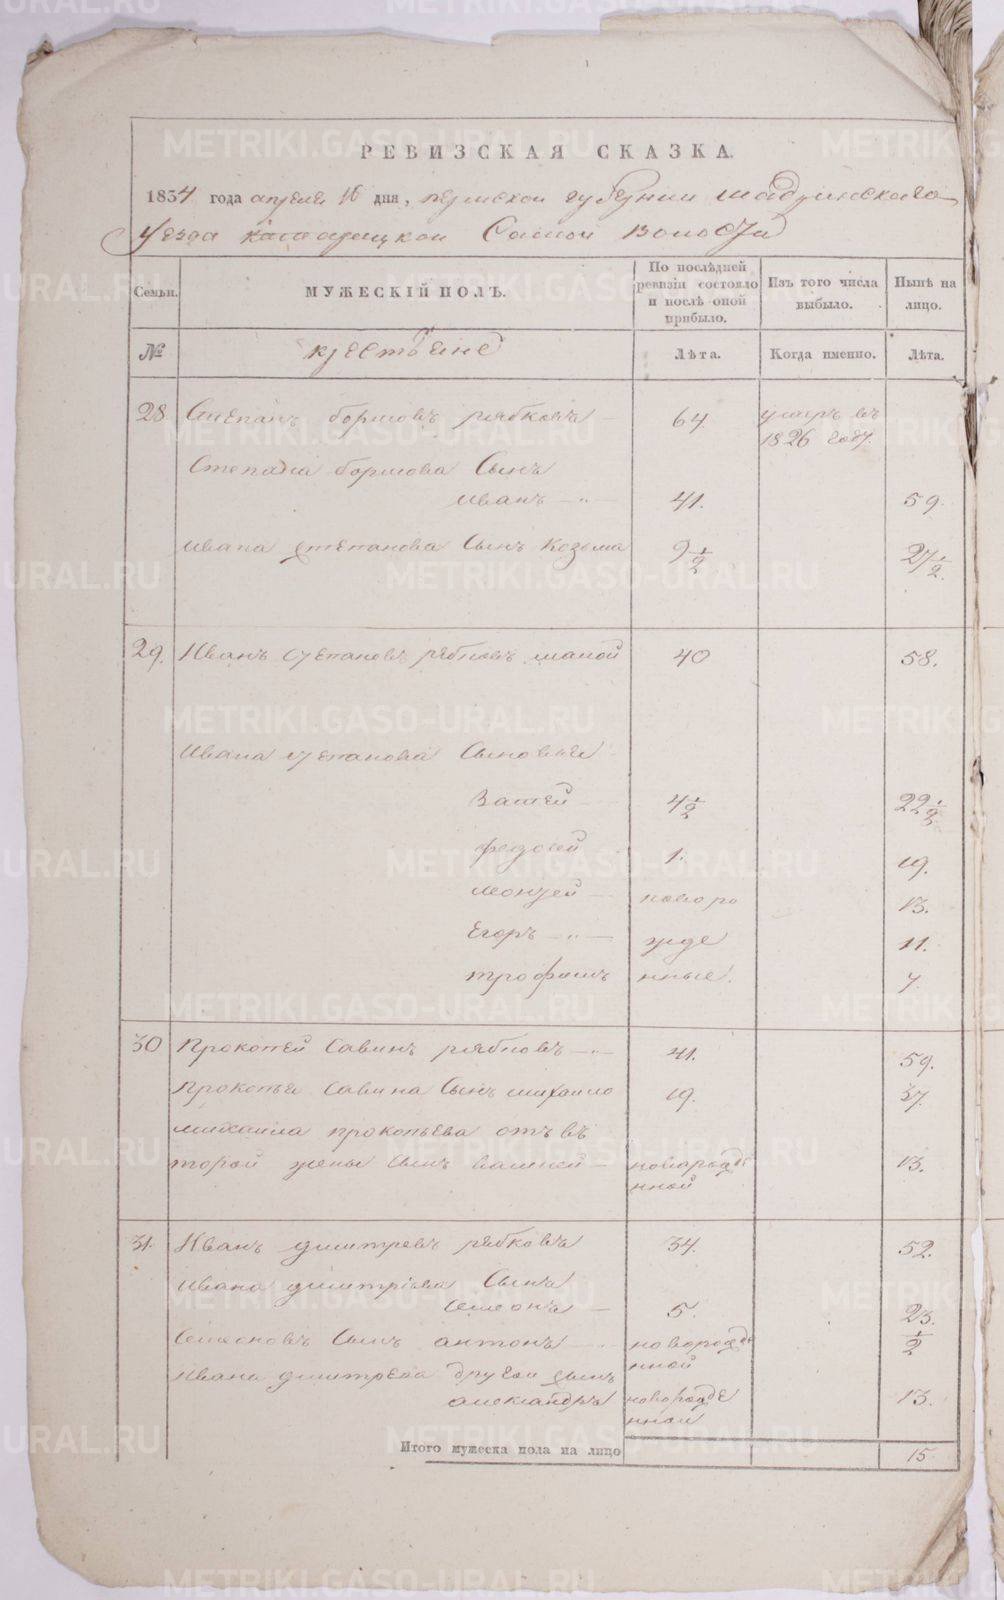 РЕВИЗСКАЯ СКАЗКА.
1834 года апреля 16 дня, пермской губернии шадринскаго
уезда Самой волости
Семьи. МУЖЕСКІЙ ПОЛЪ. По послѣдней ревизіи состояло и послѣ оной прибыло. Изъ того числа выбыло. Нынѣ на лицо.
№ крестьяне Лѣта. Когда именно. Лѣта.
28 Степанъ борисовъ рябковъ 64. умеръ въ 1826 году.
Степана борисова Сынъ
иванъ — „ — 41. 59.
ивана степанова Сынъ Козьма 9 1/2 27 1/2.
29. Иванъ степановъ рябковъ малой 40 58.
Ивана степанова Сыновья
Васлей 4 1/2 22 1/2
федосей 1. 19.
новоро 13.
Егоръ — „ — жде 11.
трофимъ нные. 7.
30 Прокопей Савинъ рябковъ — „ — 41. 59.
прокопья Савина Сынъ михаило 19. 37.
михаила прокопьева отъ в
торой жены Сынъ васлей — новорожде 13.
нной
31. Иванъ дмитревъ рябковъ 34. 52.
ивана дмитріева Сынъ
Семенъ — 5. 23.
Семеновъ Сынъ антонъ новорожде 1/2
нной
ивана дмитрева другой сынъ
александръ новорожде 13.
нной
Итого мужеска пола на лицо 15.
METRIKI.GASO-URAL.RU